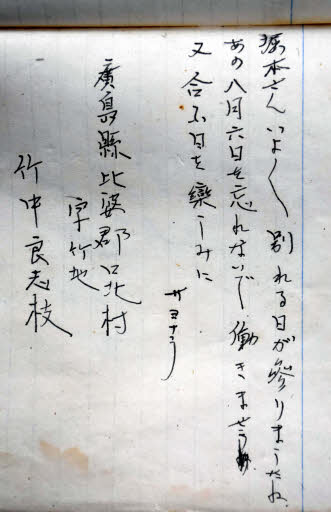 塚本さんいよ〱別れる日が参りましたね
あの八月六日を忘れないで働きませうね
又合ふ日を樂しみに
サヨナラ
廣島縣比婆郡口北村
字竹地
竹中良志枝